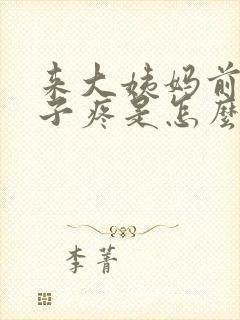 来大姨妈前
子疼是怎麼
李菁